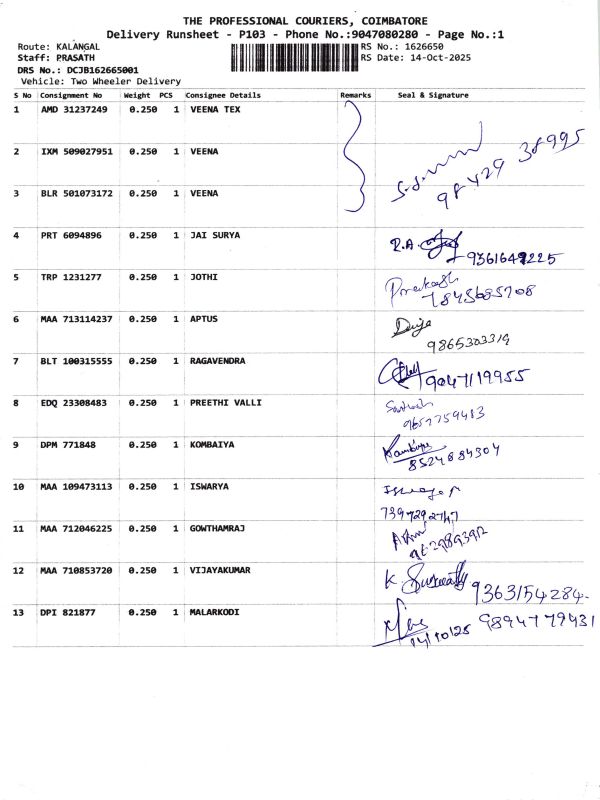 THE PROFESSIONAL COURIERS, COIMBATORE
Delivery Runsheet - P103 - Phone No.:9047080280 - Page No.:1
Route: KALANGAL
RS No.: 1626650
Staff: PRASATH
RS Date: 14-Oct-2025
DRS No.: DCJB162665001
Vehicle: Two Wheeler Delivery
S No Consignment No Weight PCS Consignee Details Remarks Seal & Signature
1 AMD 31237249 0.250 1 VEENA TEX
2 IXM 509027951 0.250 1 VEENA
98429 38995
3 BLR 501073172 0.250 1 VEENA
4 PRT 6094896 0.250 1 JAI SURYA R.A.
5 TRP 1231277 0.250 1 JOTHI Prakash
7845685708
6 MAA 713114237 0.250 1 APTUS
9865303319
7 BLT 100315555 0.250 1 RAGAVENDRA 9047119955
8 EDQ 23308483 0.250 1 PREETHI VALLI
9652759413
9 DPM 771848 0.250 1 KOMBAIYA
8524884304
10 MAA 109473113 0.250 1 ISWARYA
7397292747
11 MAA 712046225 0.250 1 GOWTHAMRAJ
9629893912
12 MAA 710853720 0.250 1 VIJAYAKUMAR K.
9363154284
13 DPI 821877 0.250 1 MALARKODI
14/10/25 9894779431